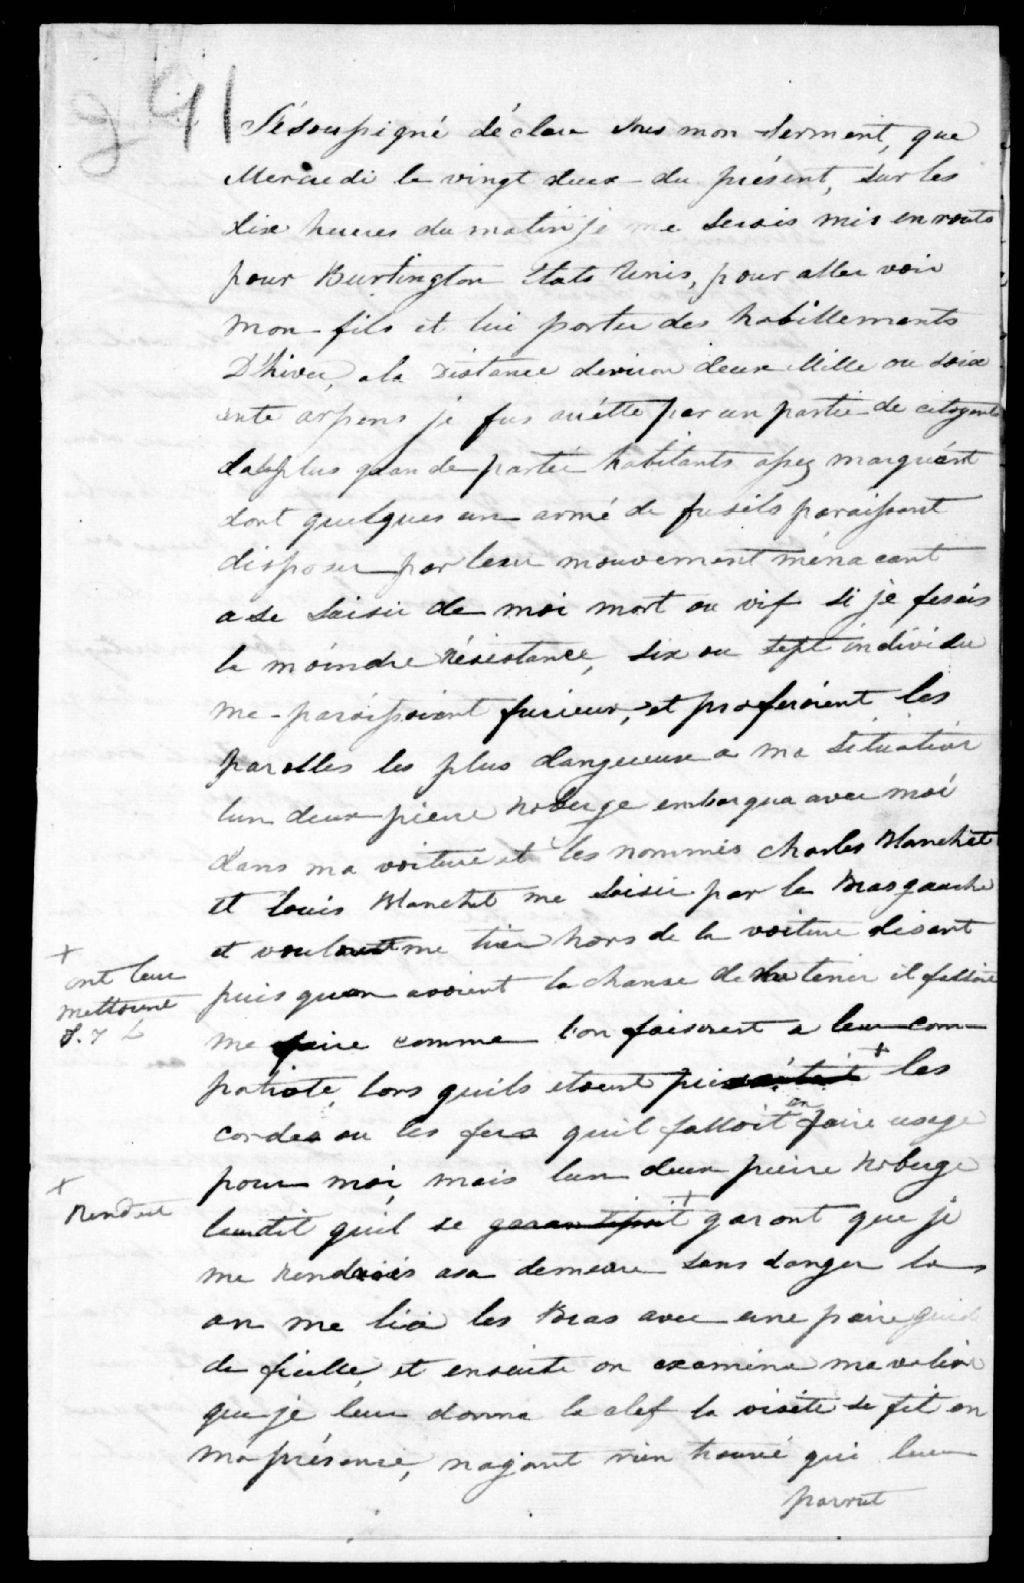 91
Sésousigné déclare sous mon serment, que
Mercredi le vingt deux du présent, sur les
dix heures du matin je me serais mis en route
pour Burlington Etats Unis, pour aller voir
mon fils et lui porter des habillements
D'hiver, a la Distance deviron deux Mille ou soix
ente arpens je fus arrétté par un partie de citoyens
la plus grande partie habitants assez marquént
dont quelques un armé de fusils paraissent
disposer par leur mouvement ménacant
a se saisir de moi mort ou vif si je fesais
la moindre résistance, six ou sept individu
me paroissoient furieux, et proferoient les
parolles les plus dangereuse a ma situation
lun deux pierre roberge embarqua avec moi
dans ma voiture et les nommés charles Blanchet
et louis Blanchet me saisir par le Bras gauche
et vouloit me tirer hors de la voiture disant
puis quon avoient la chance de me tenir il falloit
me faire comme l'on faisoient a leur com-
patriote, lors quils etoient pris + les
cordes ou les fers quil falloit en faire usage
pour moi, mais lun deux pierre roberge
leur dit quil se garantissoit + garant que je
me rendrois a sa demeure sans danger la
on me lia les Bras avec une paire guide
de ficelle, et ensuite on examina ma valise
que je leur donna la clef la visite se fit en
ma présence, nayant rien trouvé qui leur
parrut
+
ont leur
mettoient
+
Rendut